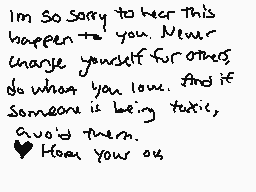 Im so sorry to hear this
happen to you. Never
change yourself for others,
do what you love. And if
someone is being toxic,
avoid them.
♥ Hope your ok